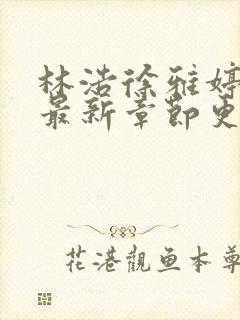 林浩徐雅婷
最新章节更
花港觀鱼本尊